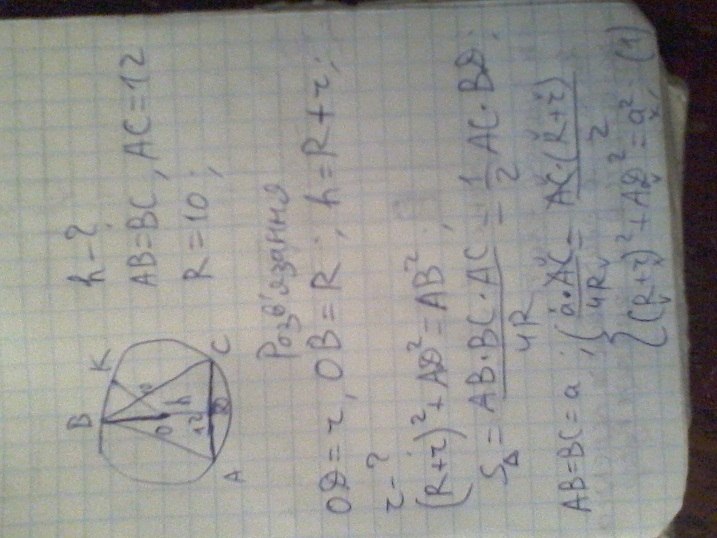 h-?
AB=BC, AC=12
R=10;
B
K
O
h
12
D
A
C
Розв'язання
OD=r, OB=R; h=R+r;
r-?
(R+r)²+AD²=AB²,
S△ = AB·BC·AC / 4R = 1/2 AC·BD;
AB=BC=a; { a²·AC / 4R = AC·(R+r) / 2
{ (R+r)²+AD²=a². (1)